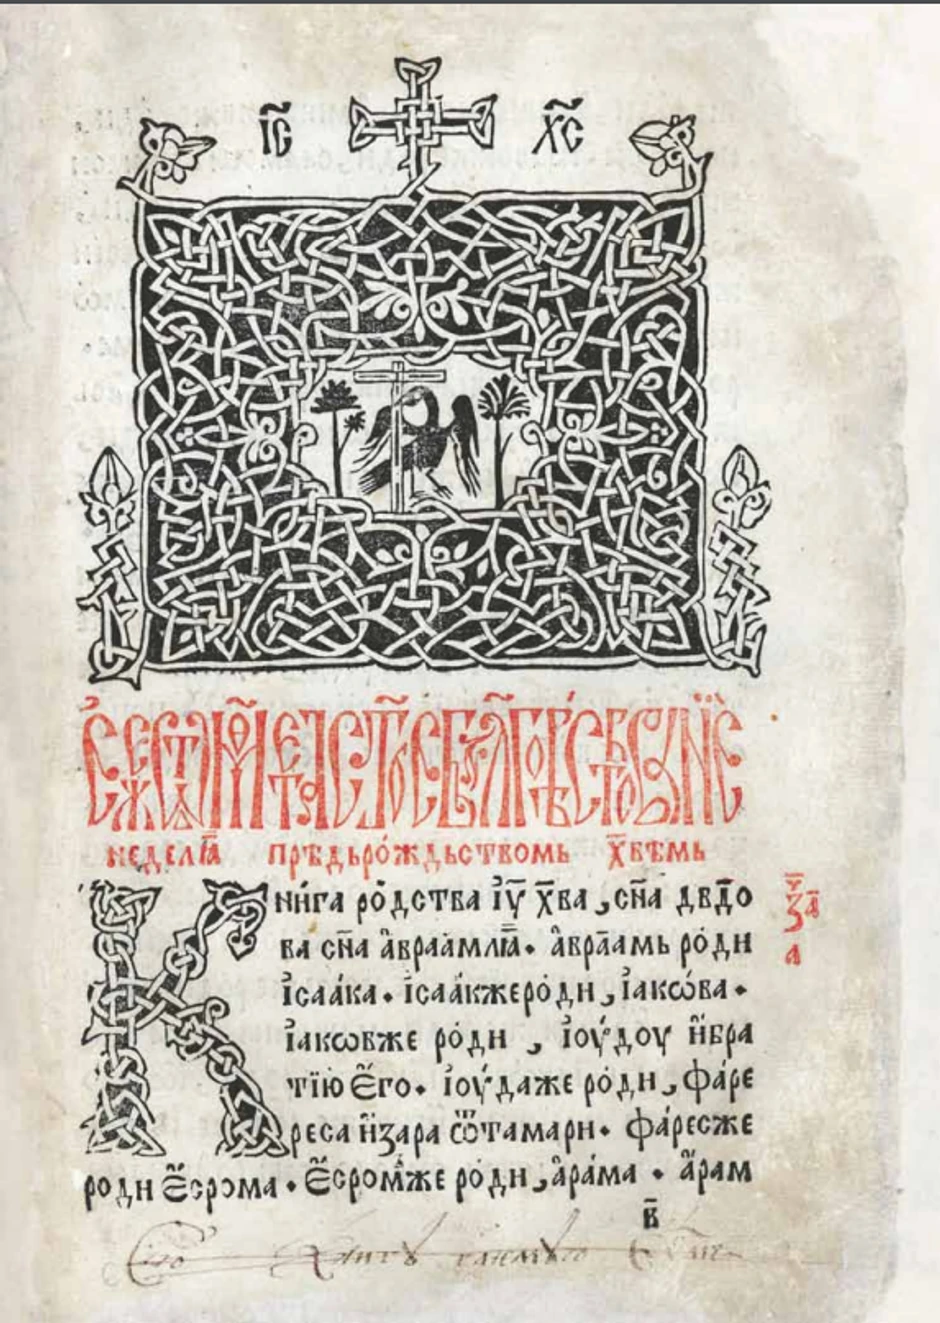 І҃С Х҃С
неделꙗ҃ прѣдьро́ждьствомь х҃вѣмь
Кни́га ро́дства і҆у҃ х҃ва , сн҃а дв҃до
ва сн҃а а҆враа́млꙗ҃ · а҆враа́мь ро́ди
і҆саа́ка · і҆саа́кжеро́ди , і҆акѡ́ва ·
і҆акѡвже ро́ди , і҆оу́доу и҆бра
тїю є҆го · і҆оу́даже ро́ди , фа́ре
реса и҆зара ѿтамари · фа́ресже
роди є҆срома · є҆сро́мже ро́ди , а҆ра́ма · а҆рам
з҃а҃
а
в҃